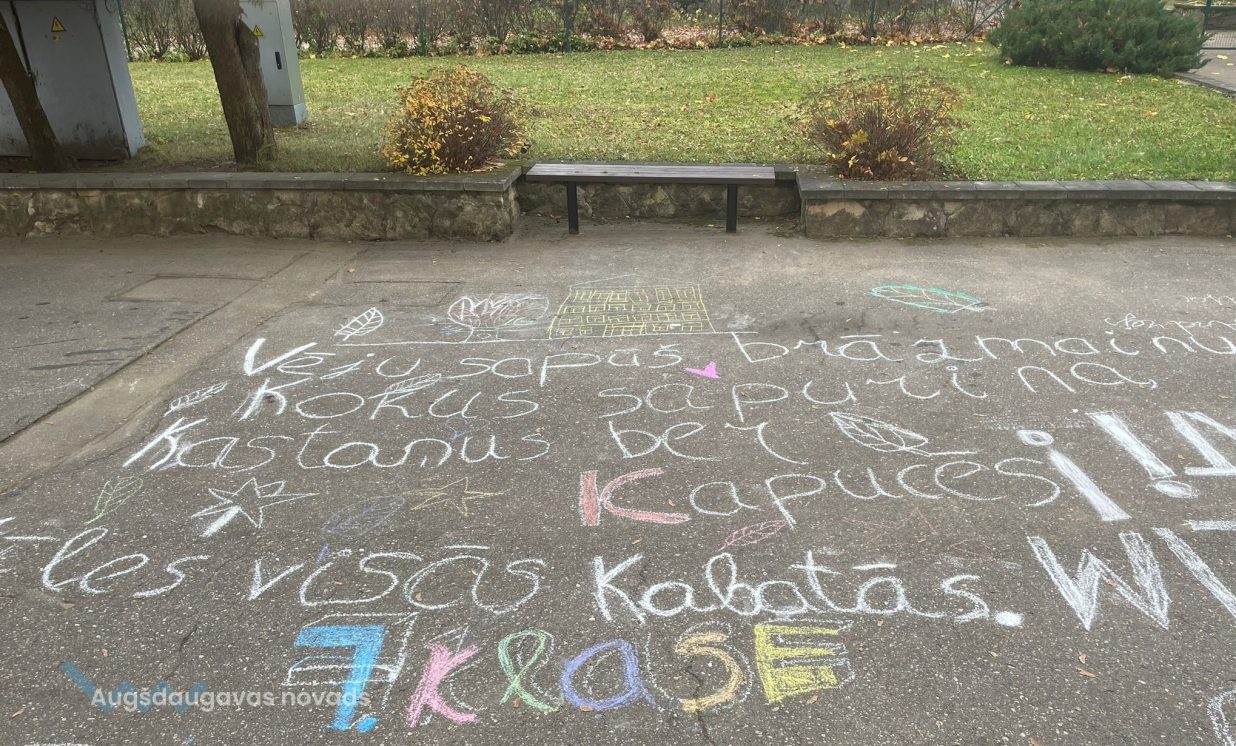 Vēju šapās, brāzmainu
Kokus sapurina,
Kastaņus ber
Kapucēs
les visās Kabatās.
7. klase
Augšdaugavas novads